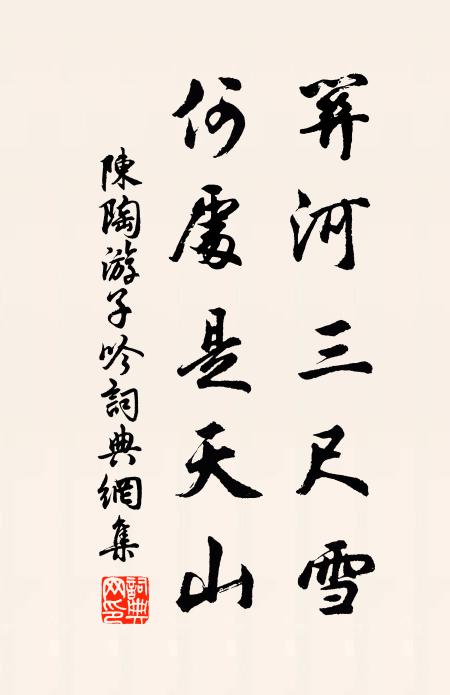 關河三尺雪
何處是天山
陳陶游子吟詞典網集
詞典网印